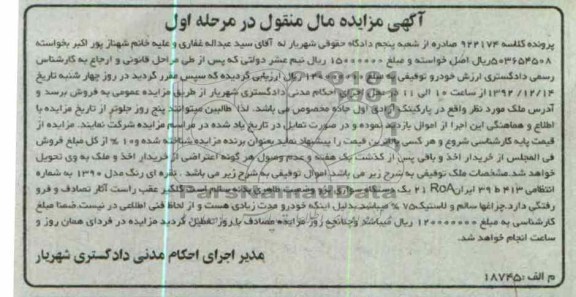 آگهی مزایده مال منقول در مرحله اول
پرونده کلاسه ۹۲۲۱۷۴ صادره از شعبه پنجم دادگاه حقوقی شهریار له آقای سید عبداله غفاری و علیه خانم شهناز پور اکبر بخواسته
۵۰۳۶۵۴۵۰۸ریال اصل خواسته و مبلغ ۱۵۰۰۰۰۰۰ ریال نیم عشر دولتی که پس از طی مراحل قانونی و ارجاع به کارشناس
رسمی دادگستری ارزش خودرو توقیفی به مبلغ ریال ارزیابی گردیده که سپس مقرر گردید در روز چهار شنبه تاریخ
۱۳۹۲/۱۲/۱۴از ساعت ۱۰ الی ۱۱ در محل اجرای احکام مدنی دادگستری شهریار از طریق مزایده عمومی به فروش برسد و
آدرس ملک مورد نظر واقع در پارکینگ آزادی اول جاده مخصوص می باشد. لذا طالبین میتوانند پنج روز جلوتر از تاریخ مزایده با
اطلاع و هماهنگی این اجرا از اموال بازدید نموده و در صورت تمایل در تاریخ یاد شده در مراسم مزایده شرکت نمایند. مزایده از
قیمت پایه کارشناسی شروع و هر کسی بالاترین قیمت را پیشنهاد نماید بعنوان برنده مزایده شناخته شده و۱۰ % از کل مبلغ فروش
فی المجلس از خریدار اخذ و باقی پس از گذشت یک هفته و عدم وصول هر گونه اعتراضی از خریدار اخذ و ملک به وی تحویل
خواهد شد.مشخصات ملک توقیفی به شرح زیر می باشد اموال توقیفی به شرح زیر می باشد . نقره ای رنگ مدل ۱۳۹۰ به شماره
انتظامی ۴۱۳ ب ۳۹ ایران ۲۱ RoA یک دستگاه سواری وضعیت ظاهری بدنه سالم است گلگیر عقب راست آثار تصادف و فرو
رفتگی دارد.چراغها سالم و لاستیک۷۵ % میباشد.بدلیل اینکه خودرو مدت زیادی هست و از لحاظ فنی اطلاعی در نیست.ضمنا مبلغ
کارشناسی به مبلغ ۱۲۰۰۰۰۰۰۰ ریال میباشد وچنانچه روز مزایده مصادف با روز تعطیل گردید مزایده در فردای همان روز و
ساعت انجام خواهد شد.
مدیر اجرای احکام مدنی دادگستری شهریار
م الف :۱۸۷۴۵